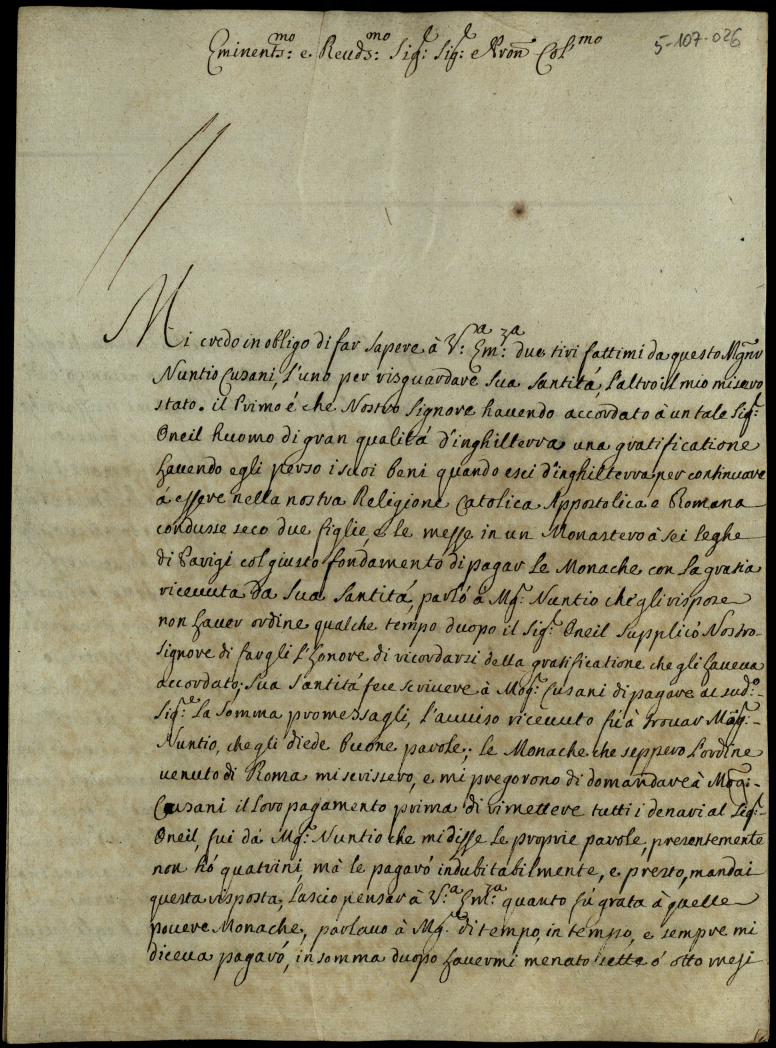 5-107-026
Eminent.mo: e Reuds.mo: Sig.r: Sig.r: e Pron Col.mo
Mi credo in obligo di far sapere à V.a: Em.za: due tiri fattimi da questo Mgnr
Nuntio Cusani, l'uno per risguardare Sua Santitá, l'altro il mio misero
stato. il Primo é che Nostro Signore hauendo accordato à un tale Sig.r:
Oneil huomo di gran qualitá d'inghilterra una gratificatione
hauendo egli perso i suoi beni quando esci d'inghilterra per continuare
á essere nella nostra Religione Catolica Appostolica e Romana
condusse seco due figlie, e le messe in un Monastero à sei leghe
di Parigi col giusto fondamento di pagar le Monache con la gratia
riceuuta da Sua Santitá, parló à Mg.r: Nuntio che gli rispose
non hauer ordine qualche tempo duopo il Sig.r: Oneil supplicó Nostro
Signore di fargli l'honore di ricordarsi della gratificatione che gli haueua
accordato; Sua Santitá fece scriuere à Mog.r: Cusani di pagare al sud.o:
Sig.re: la somma promessagli, l'auuiso riceuuto fú à trouar Mog.r:
Nuntio, che gli diede buone parole; le Monache che seppero l'ordine
uenuto di Roma mi scrissero, e mi pregorono di domandare à Mog.r:
Cusani il loro pagamento prima di rimettere tutti i denari al Sig.r:
Oneil, fui da Mg.r: Nuntio che mi disse le proprie parole, presentemente
non hó quatrini, mà le pagaró indubitabilmente, e presto, mandai
questa risposta, lascio pensar à V.a: Em.a: quanto fú grata à quelle
pouere Monache, parlauo à Mg.r di tempo, in tempo, e sempre mi
diceua pagaró, in somma duopo hauermi menato sette ó otto mesi